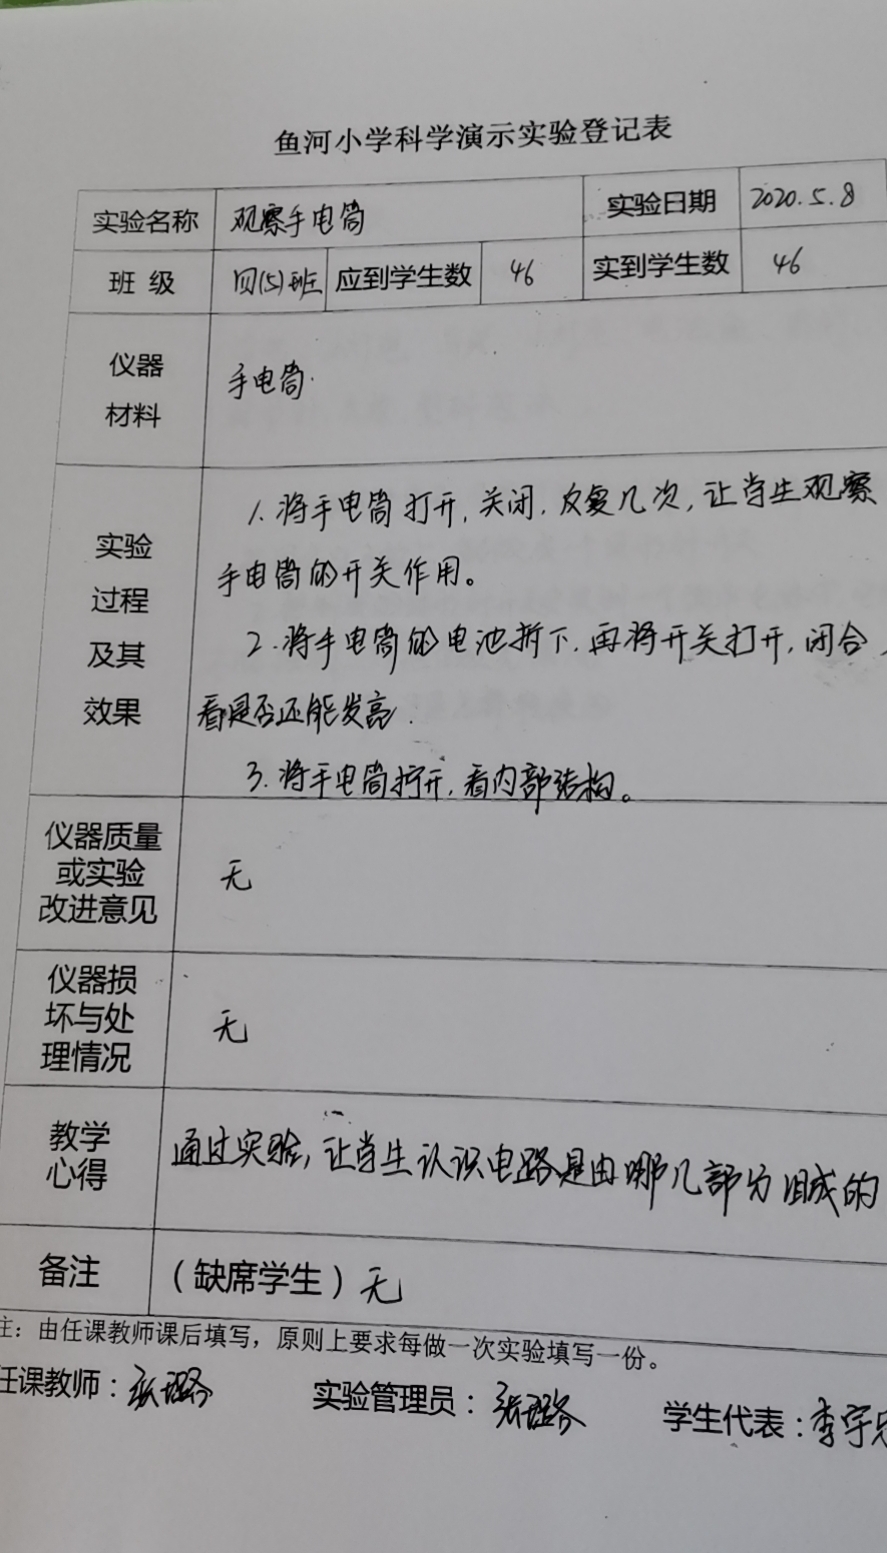 鱼河小学科学演示实验登记表
实验名称 观察手电筒 实验日期 2020.5.8
班 级 四(5)班 应到学生数 46 实到学生数 46
仪器
材料
手电筒.
实验
过程
及其
效果
1.将手电筒打开,关闭.反复几次,让学生观察
手电筒的开关作用。
2.将手电筒的电池拆下,再将开关打开,闭合,
看是否还能发亮.
3.将手电筒拧开,看内部结构。
仪器质量
或实验
改进意见
无
仪器损
坏与处
理情况
无
教学
心得
通过实验,让学生认识电路是由哪几部分组成的
备注 (缺席学生)无
注:由任课教师课后填写,原则上要求每做一次实验填写一份。
任课教师:张璐 实验管理员:张璐 学生代表:李宇